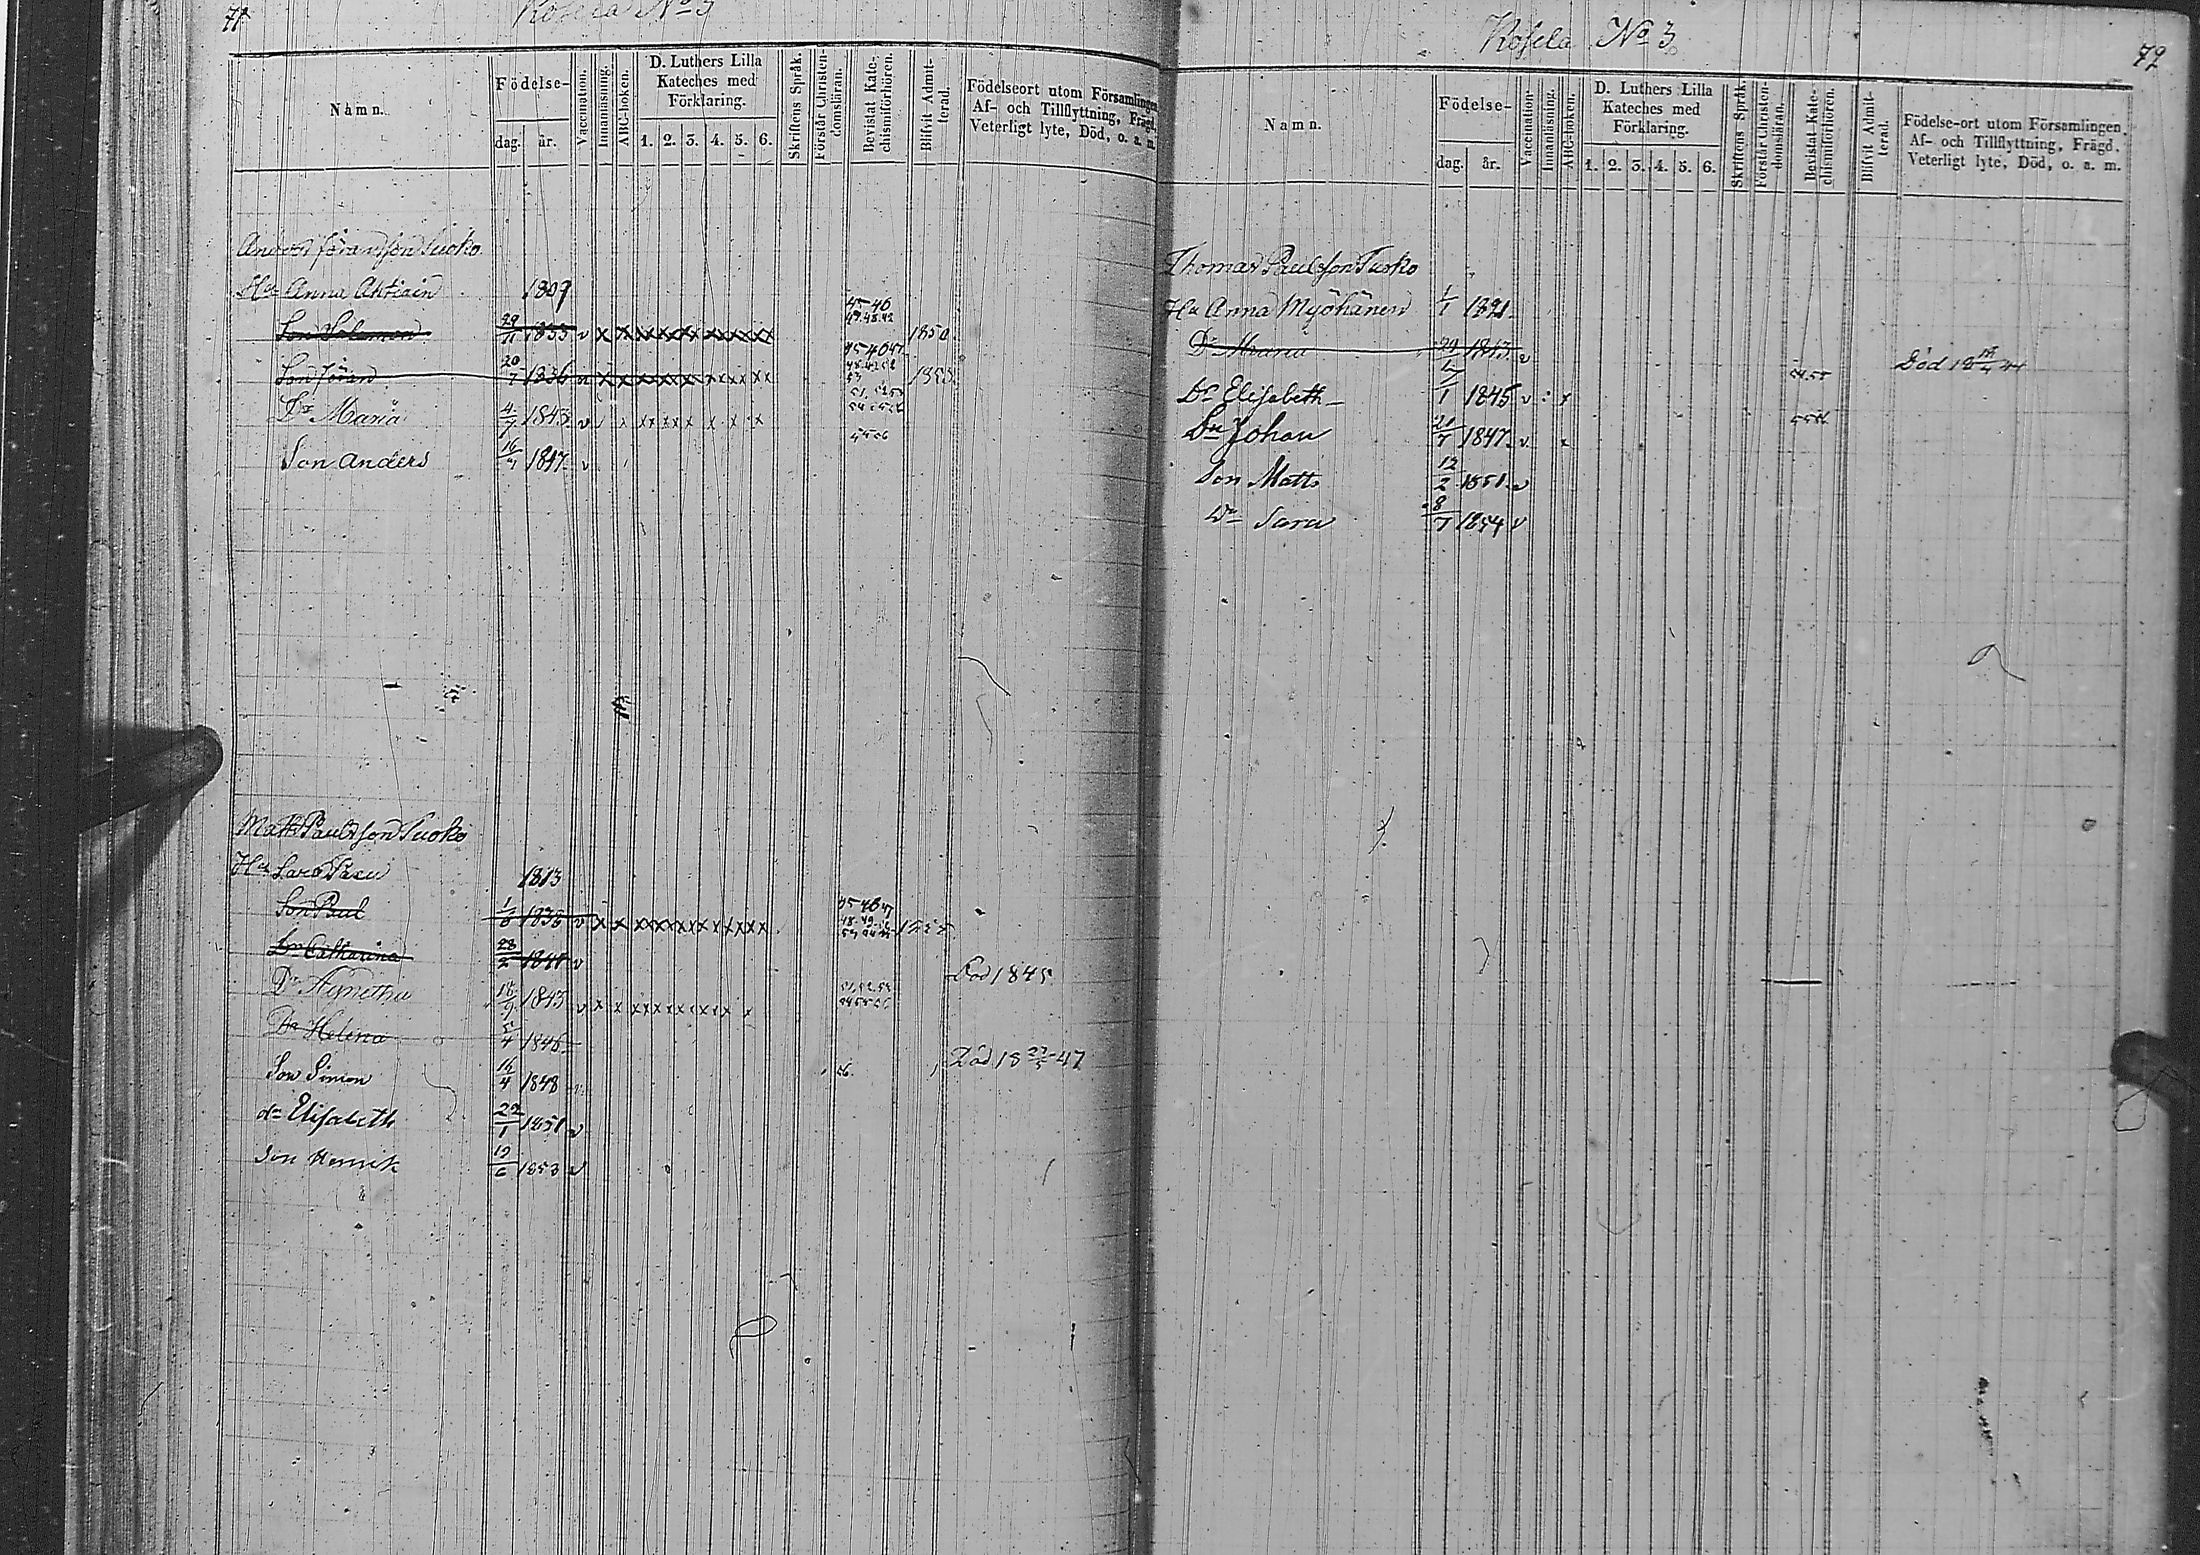 77
Kosela No 3
Namn.
Födelse-
dag. år.
Vaccination.
Innanläsning.
ABC-boken.
D. Luthers Lilla
Kateches med
Förklaring.
1. 2. 3. 4. 5. 6.
Skriftens Språk.
Förstår Christen-
domsläran.
Bevistat Kate-
chismiförhören.
Blifvit Admit-
terad.
Födelseort utom Församlingen
Af- och Tillflyttning, Frägd,
Veterligt lyte, Död, o. a. m.
Anders Söransson Tuoko
Hu Anna Ahtiain 1807
45 46
47 48 49
Son Salomon 29/11 1833 v x x x x x x x x x x x x 1850
45 46 47
Son Jöran 20/7 1836 v x x x x x x x x x x x x 1853
Dr Maria 4/7 1843 v x x x x x x x x
55 56
Son Anders 16/4 1847 v
Matts Paulsson Tuoko
Hu Sara Pseu 1813
45 46 47
Son Paul 1/6 1838 v x x x x x x x x x x x x x
Dr Catharina 28/2 1841 v Död 1845
51, 52 53
54 55 56
Dr Agnetha 18/9 1843 v x x x x x x x x x x x x
Dr Helena 5/4 1846 Död 18 27/5 47
Son Simon 16/4 1848 56.
dr Elisabeth 22/1 1851 v
Son Henrik 19/6 1853 v
Kosela No 3
79
Namn.
Födelse-
dag. år.
Vaccination.
Innanläsning.
ABC-boken.
D. Luthers Lilla
Kateches med
Förklaring.
1. 2. 3. 4. 5. 6.
Skriftens Språk.
Förstår Christen-
domsläran.
Bevistat Kate-
chismiförhören.
Blifvit Admit-
terad.
Födelse-ort utom Församlingen,
Af- och Tillflyttning, Frägd,
Veterligt lyte, Död, o. a. m.
Thomas Paulsson Tuoko
Hu Anna Myöhänen 1/1 1821
Dr Maria 1843 v Död 18
54 55
Dr Elisabeth 1/1 1845 v x
55 56
Son Johan 21/7 1847 v x
Son Matts 12/2 1851 v
Dr Sara 8/7 1854 v